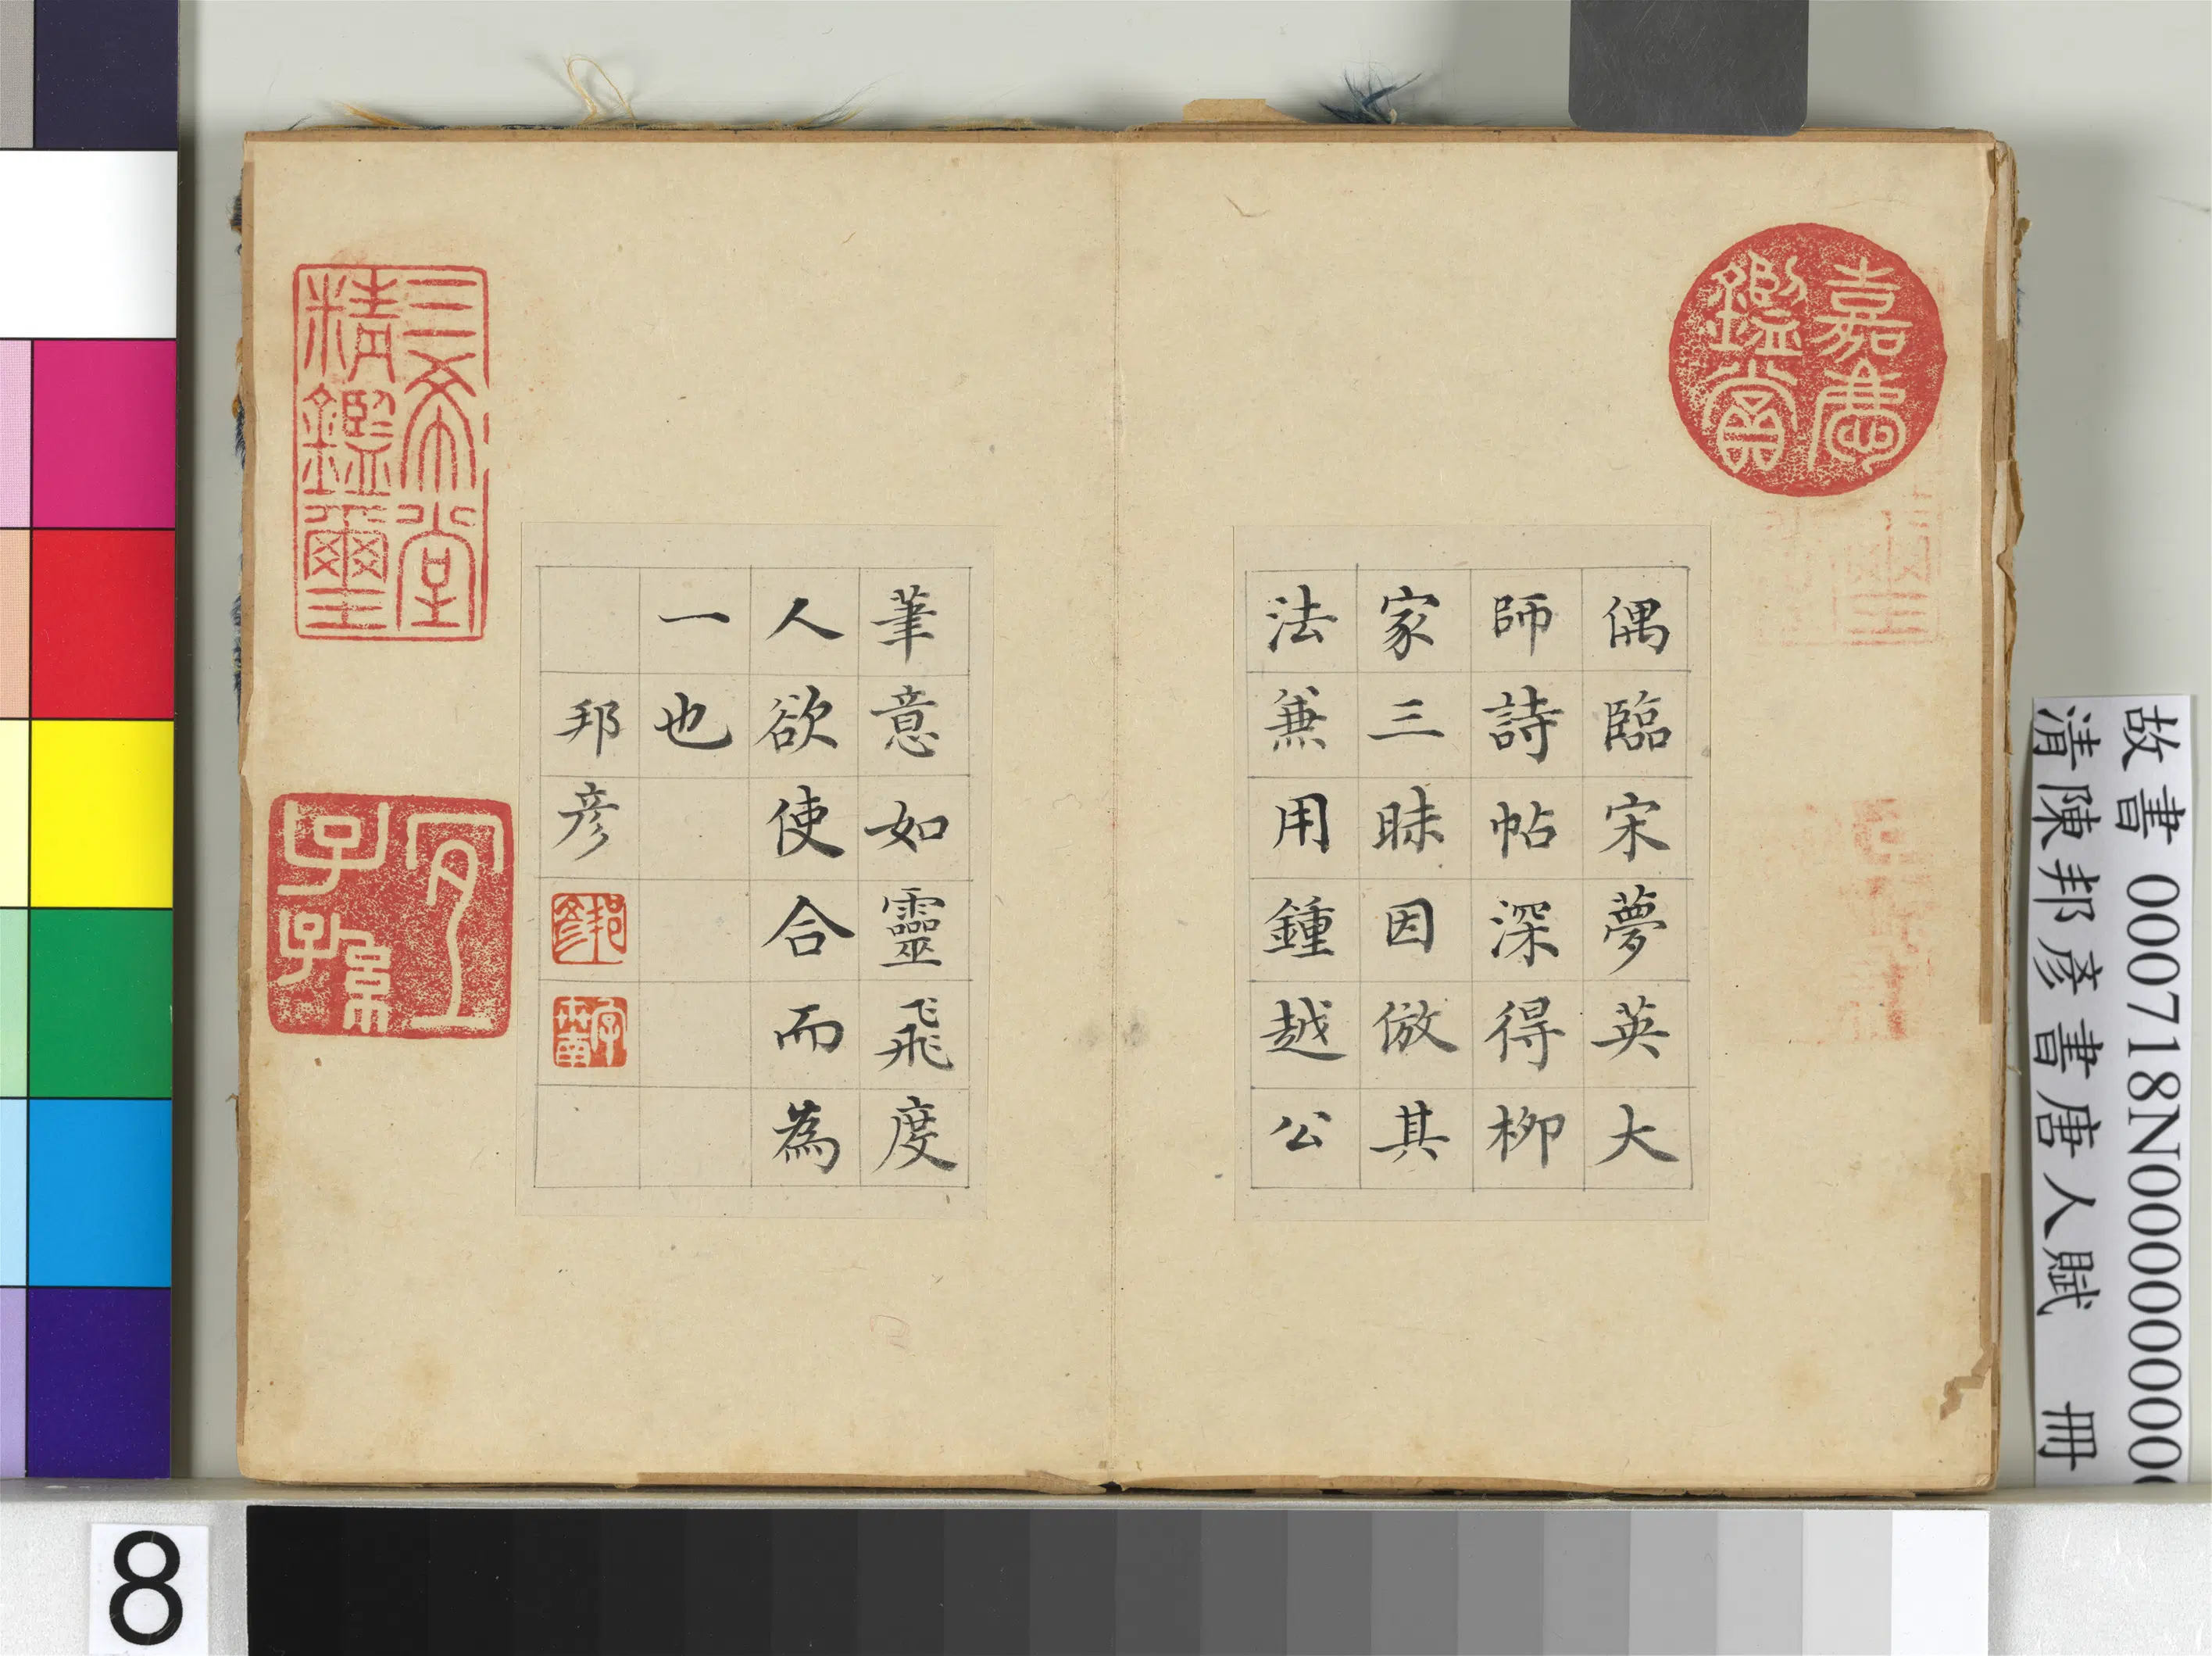 嘉慶
鑑賞
偶臨宋夢英大
師詩帖深得栁
家三昧因倣其
法兼用鍾越公
筆意如靈飛度
人欲使合而為
一也
邦彦
邦彦
字世南
三希堂
精鑑璽
宜
子孫
故書 000718N000000000
清陳邦彥書唐人賦 冊
8